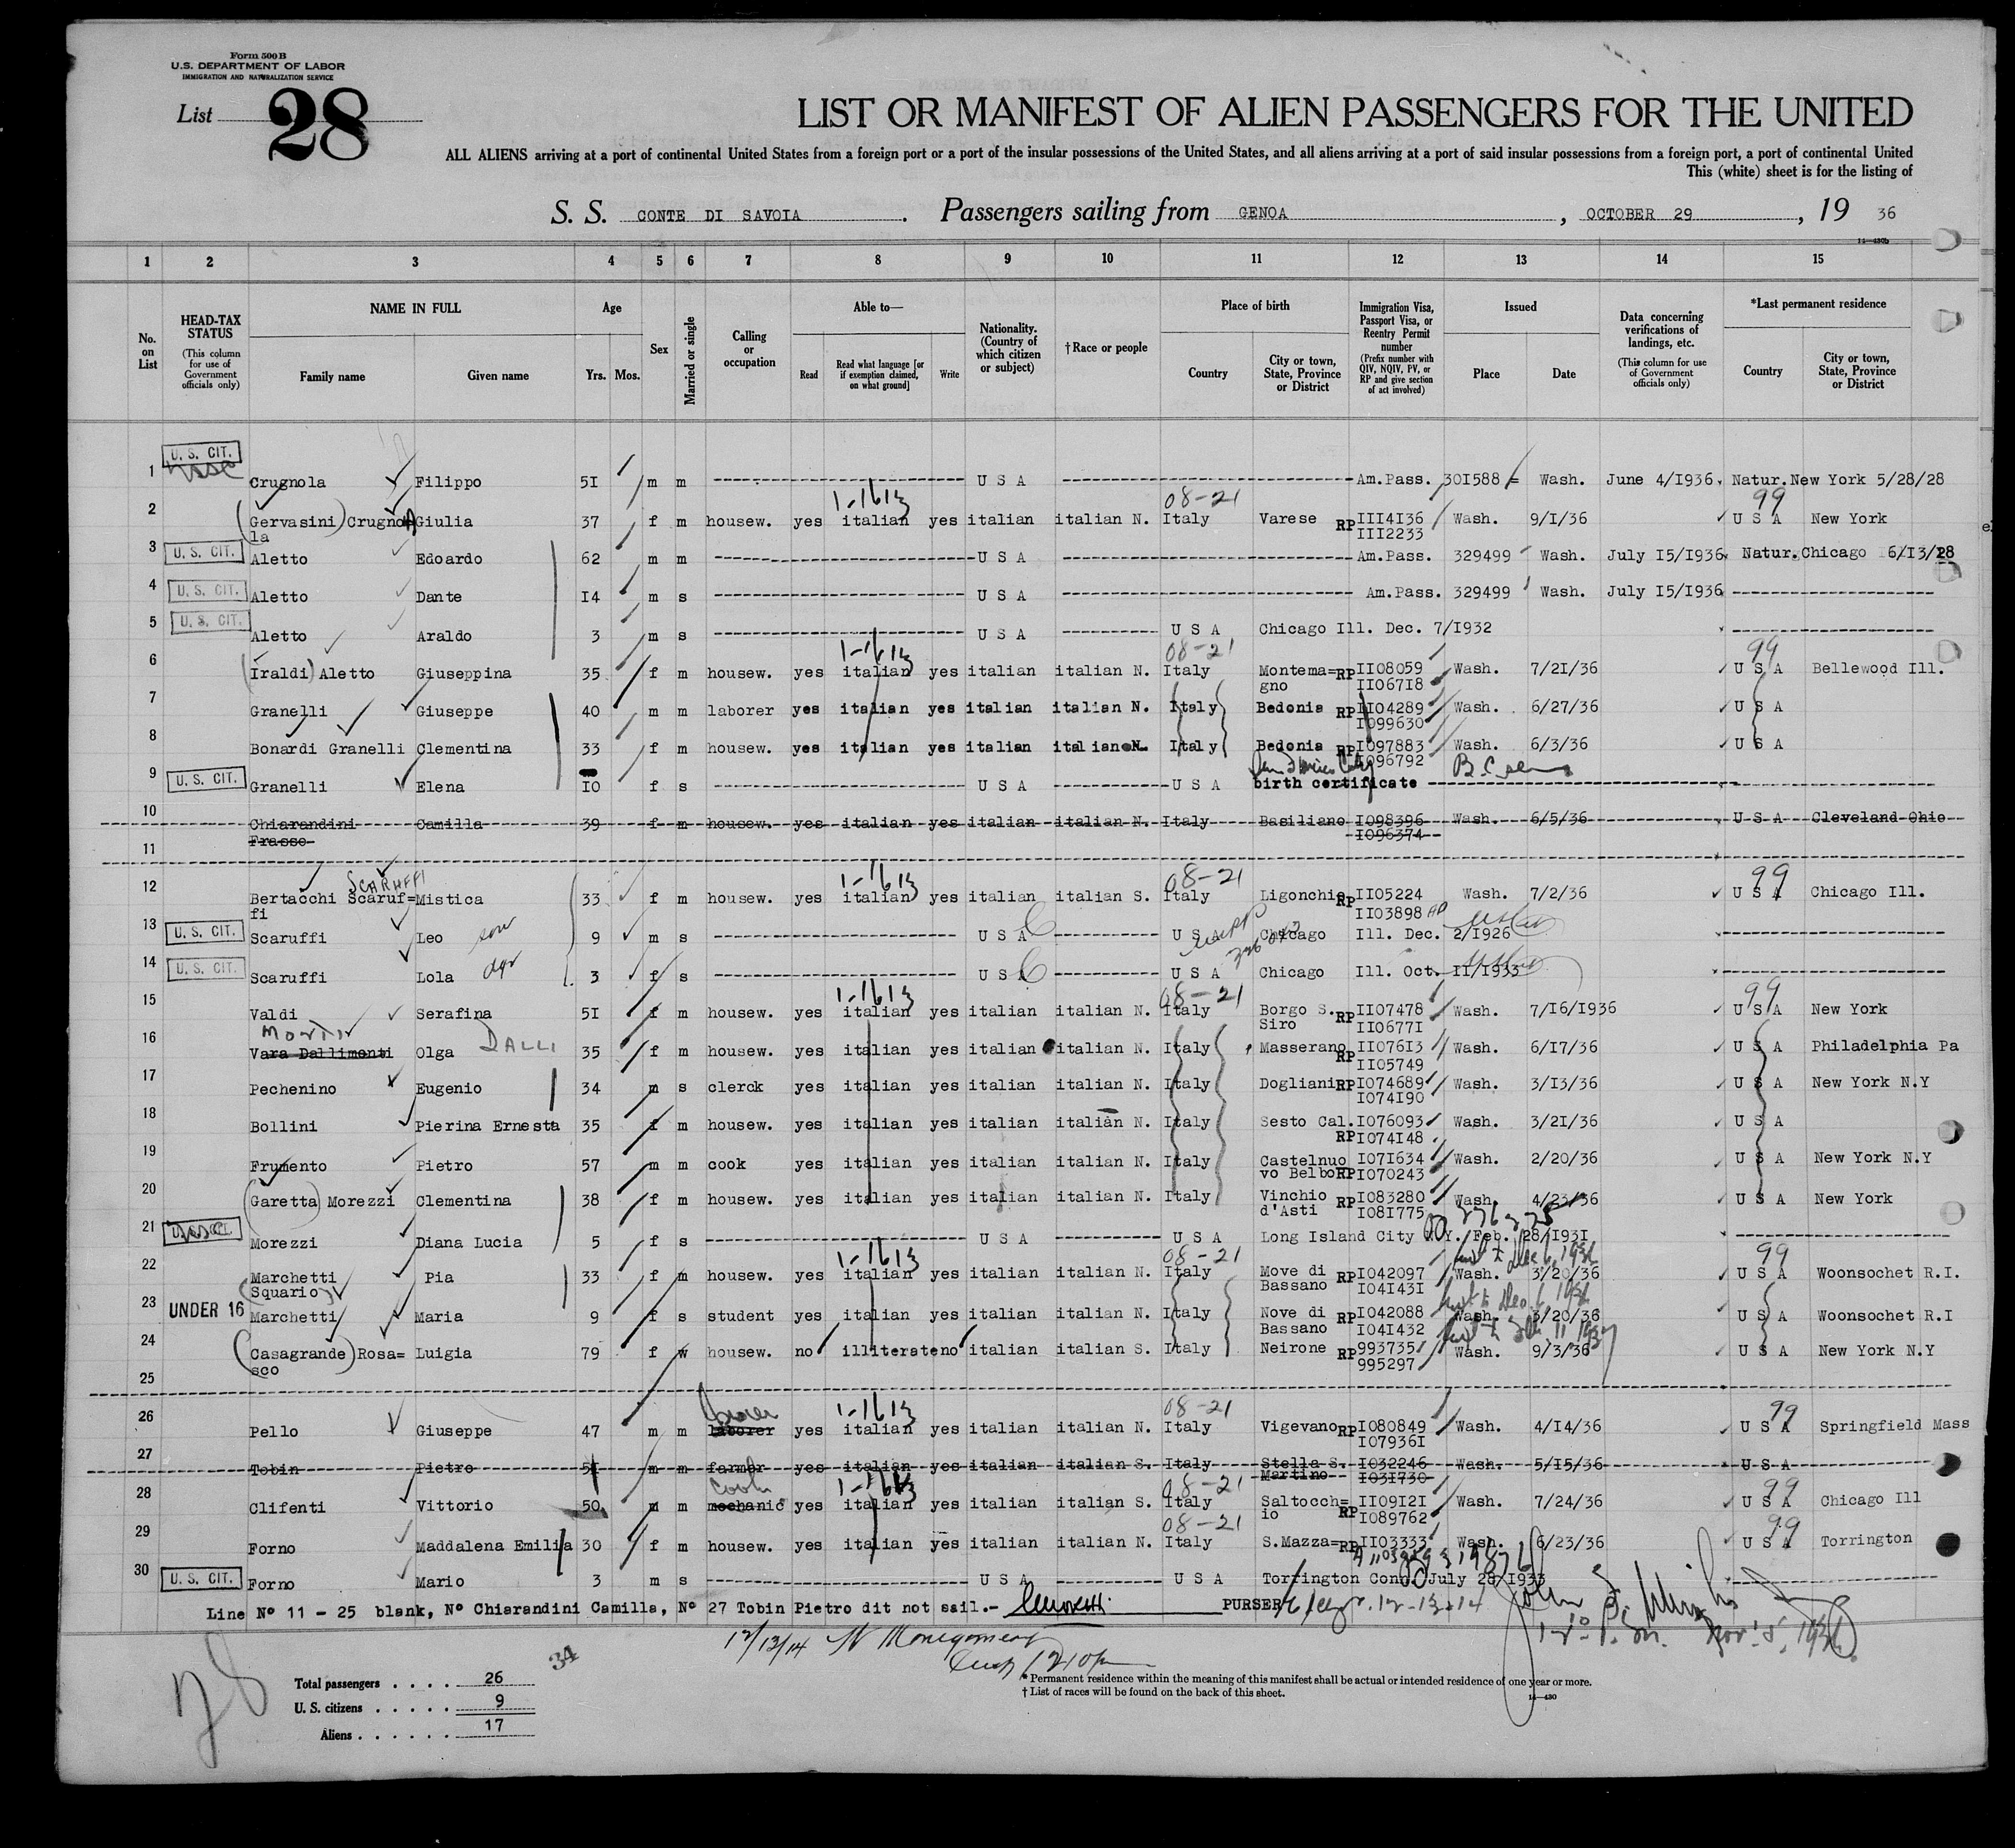 Form 500 B
U.S. DEPARTMENT OF LABOR
IMMIGRATION AND NATURALIZATION SERVICE
List 28
LIST OR MANIFEST OF ALIEN PASSENGERS FOR THE UNITED
ALL ALIENS arriving at a port of continental United States from a foreign port or a port of the insular possessions of the United States, and all aliens arriving at a port of said insular possessions from a foreign port, a port of continental United
This (white) sheet is for the listing of
S. S. CONTE DI SAVOIA. Passengers sailing from GENOA, OCTOBER 29, 19 36
14—430b
1 2 3 4 5 6 7 8 9 10 11 12 13 14 15
No. on List
HEAD-TAX STATUS (This column for use of Government officials only)
NAME IN FULL Family name Given name
Age Yrs. Mos.
Sex
Married or single
Calling or occupation
Able to— Read Read what language [or if exemption claimed, on what ground] Write
Nationality. (Country of which citizen or subject)
†Race or people
Place of birth Country City or town, State, Province or District
Immigration Visa, Passport Visa, or Reentry Permit number (Prefix number with QIV, NQIV, PV, or RP and give section of act involved)
Issued Place Date
Data concerning verifications of landings, etc. (This column for use of Government officials only)
*Last permanent residence Country City or town, State, Province or District
1 U. S. CIT. Crugnola Filippo 5I m m U S A Am.Pass. 30I588 Wash. June 4/I936. Natur.New York 5/28/28
1-1613 08-21 99
2 (Gervasini) Crugnola Giulia 37 f m housew. yes italian yes italian italian N. Italy Varese RP III4I36 III2233 Wash. 9/I/36 U S A New York
3 U. S. CIT. Aletto Edoardo 62 m m U S A Am.Pass. 329499 Wash. July I5/I936 Natur.Chicago 6/I3/28
4 U. S. CIT. Aletto Dante I4 m s U S A Am.Pass. 329499 Wash. July I5/I936
5 U. S. CIT. Aletto Araldo 3 m s U S A U S A Chicago Ill. Dec. 7/I932
1-1613 08-21 99
6 (Iraldi) Aletto Giuseppina 35 f m housew. yes italian yes italian italian N. Italy Montema=gno RP II08059 II067I8 Wash. 7/2I/36 U S A Bellewood Ill.
7 Granelli Giuseppe 40 m m laborer yes italian yes italian italian N. Italy Bedonia RP II04289 I099630 Wash. 6/27/36 U S A
8 Bonardi Granelli Clementina 33 f m housew. yes italian yes italian italian N. Italy Bedonia RP I097883 I096792 Wash. 6/3/36 U S A
9 U. S. CIT. Granelli Elena I0 f s U S A U S A birth certificate B.C. seen
10 Chiarandini Frasso Camilla 39 f m housew. yes italian yes italian italian N. Italy Basiliano I098396 I096374 Wash. 6/5/36 U S A Cleveland Ohio
11
SCARUFFI 1-1613 08-21 99
12 Bertacchi Scaruf=fi Mistica 33 f m housew. yes italian yes italian italian S. Italy Ligonchio RP II05224 II03898 Wash. 7/2/36 U S A Chicago Ill.
13 U. S. CIT. Scaruffi Leo son 9 m s U S A U S A Chicago Ill. Dec. 2/I926
14 U. S. CIT. Scaruffi Lola dgr 3 f s U S A U S A Chicago Ill. Oct. II/I933
1-1613 08-21 99
15 Valdi Serafina 5I f m housew. yes italian yes italian italian N. Italy Borgo S. Siro RP II07478 II0677I Wash. 7/I6/I936 U S A New York
16 Vara Dallimonti Olga DALLI 35 f m housew. yes italian yes italian italian N. Italy Masserano RP II076I3 II05749 Wash. 6/I7/36 U S A Philadelphia Pa
17 Pechenino Eugenio 34 m s clerck yes italian yes italian italian N. Italy Dogliani RP I074689 I074I90 Wash. 3/I3/36 U S A New York N.Y
18 Bollini Pierina Ernesta 35 f m housew. yes italian yes italian italian N. Italy Sesto Cal. RP I076093 I074I48 Wash. 3/2I/36 U S A
19 Frumento Pietro 57 m m cook yes italian yes italian italian N. Italy Castelnuo vo Belbo RP I07I634 I070243 Wash. 2/20/36 U S A New York N.Y
20 (Garetta) Morezzi Clementina 38 f m housew. yes italian yes italian italian N. Italy Vinchio d'Asti RP I083280 I08I775 Wash. 4/23/36 U S A New York
21 Morezzi Diana Lucia 5 f s U S A U S A Long Island City N.Y. Feb. 28/I93I
1-1613 08-21 99
22 Marchetti (Squario) Pia 33 f m housew. yes italian yes italian italian N. Italy Move di Bassano RP I042097 I04I43I Wash. 3/20/36 U S A Woonsochet R.I.
23 UNDER 16 Marchetti Maria 9 f s student yes italian yes italian italian N. Italy Nove di Bassano RP I042088 I04I432 Wash. 3/20/36 U S A Woonsochet R.I
24 (Casagrande) Rosa=sco Luigia 79 f w housew. no illiterate no italian italian S. Italy Neirone RP 993735 995297 Wash. 9/3/36 U S A New York N.Y
25
1-1613 08-21 99
26 Pello Giuseppe 47 m m laborer yes italian yes italian italian N. Italy Vigevano RP I080849 I07936I Wash. 4/I4/36 U S A Springfield Mass
27 Tobin Pietro 5I m m farmer yes italian yes italian italian S. Italy Stella S. Martino I032246 I03I730 Wash. 5/I5/36 U S A
Cook 1-1613 08-21 99
28 Clifenti Vittorio 50 m m mechanic yes italian yes italian italian S. Italy Saltocch=io RP II09I2I I089762 Wash. 7/24/36 U S A Chicago Ill
08-21 99
29 Forno Maddalena Emilia 30 f m housew. yes italian yes italian italian N. Italy S.Mazza= RP II03333 Wash. 6/23/36 U S A Torrington
30 U. S. CIT. Forno Mario 3 m s U S A U S A Torrington Conn. July 28/I933
Line Nº 11 - 25 blank, Nº Chiarandini Camilla, Nº 27 Tobin Pietro dit not sail.- PURSER
12/13/14
Nov. 5, 1936
34
Total passengers 26
U. S. citizens 9
Aliens 17
* Permanent residence within the meaning of this manifest shall be actual or intended residence of one year or more.
† List of races will be found on the back of this sheet.
14—430